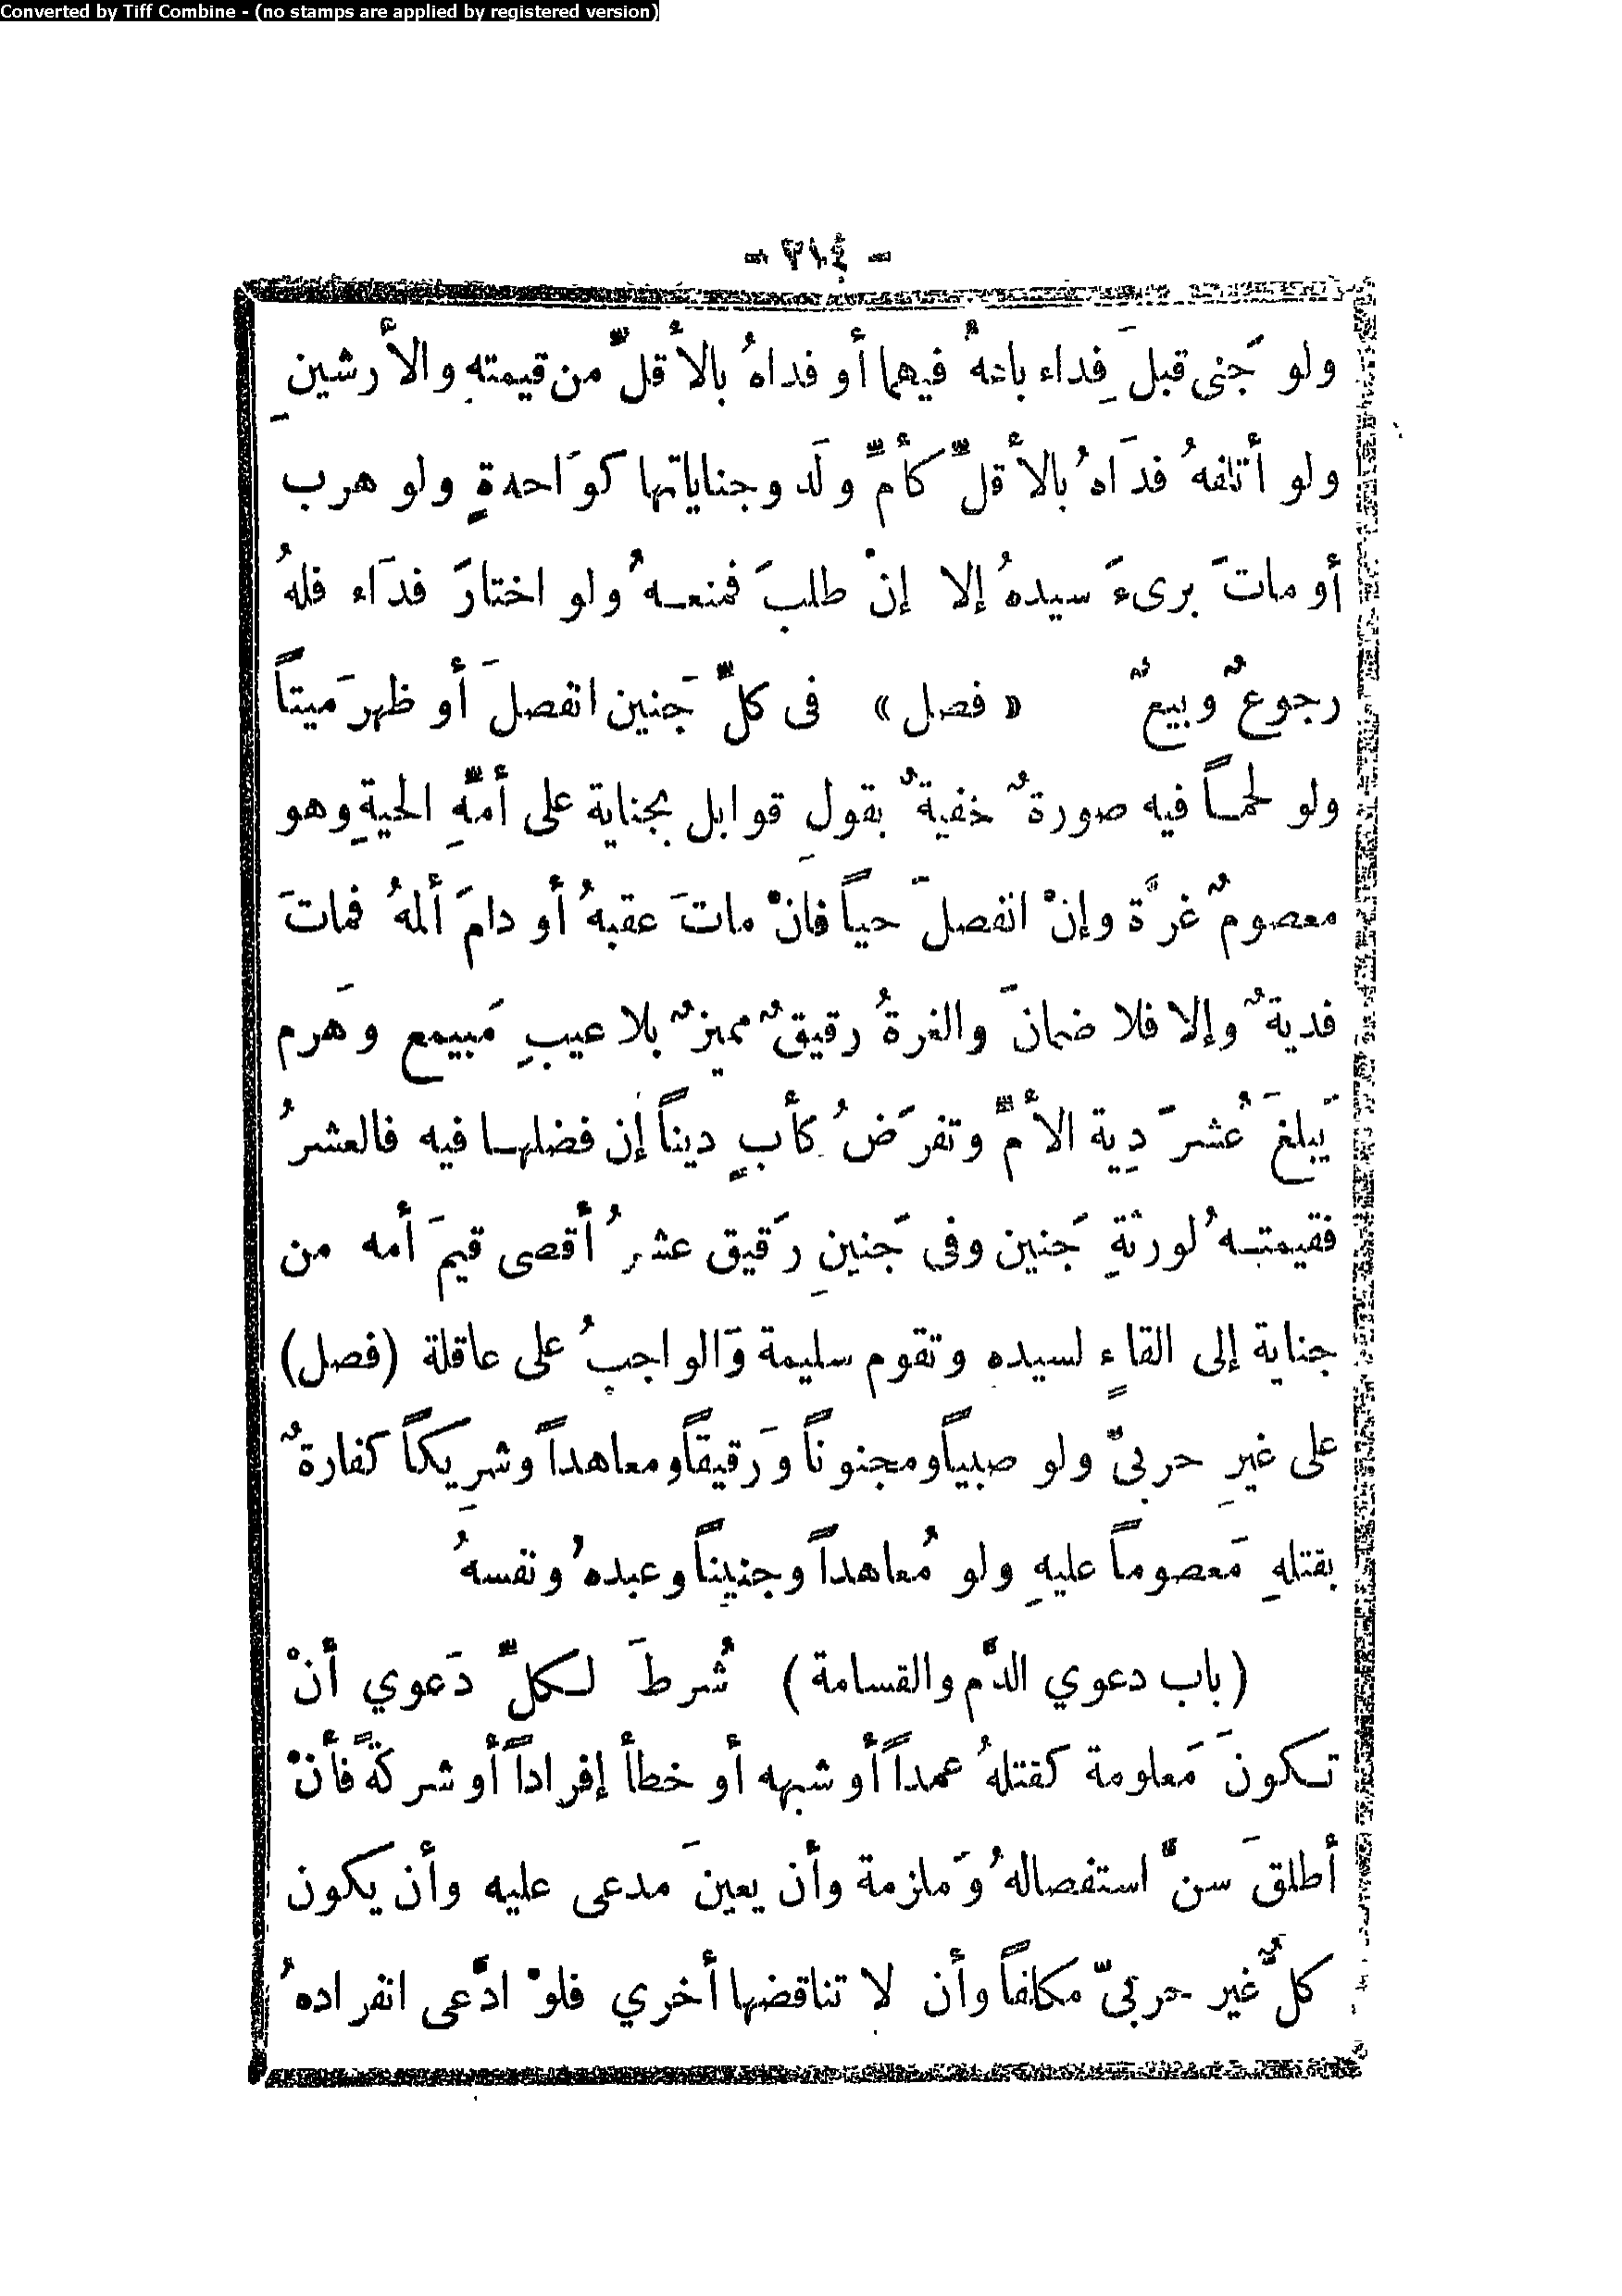 Converted by Tiff Combine - (no stamps are applied by registered version)
- ٣١٤ -
ولو جَنى قبلَ فِداء باعهُ فيهما أو فداهُ بالأقلِّ من قيمتهِ والأرشينِ
ولو أتلفهُ فدَاهُ بالأقلِّ كأمِّ ولَد وجناياتها كوَاحدةٍ ولو هرب
أو ماتَ برىءَ سيدهُ إلا إنْ طلبَ فمنعـهُ ولو اختارَ فدَاء فلهُ
رجوعٌ وبيعٌ « فصل » فى كلِّ جَنين انفصلَ أو ظهرَ ميتاً
ولو لحمـاً فيه صورةٌ خفيةٌ بقولِ قوابل بجناية على أمَّهِ الحيةِ وهو
معصومٌ غرَّة وإنْ انفصلَ حياً فانْ ماتَ عقبهُ أو دامَ ألمهُ فماتَ
فديةٌ وإلا فلا ضمانَ والغرةُ رقيقٌ مميزٌ بلا عيبِ مَبيمع وهَرم
يَبلغَ عُشرَ دِية الأمِّ وتفرَضُ كأبٍ ديناً إن فضلهـا فيه فالعشرُ
فقيمتـهُ لورثةِ جَنين وفى جَنينِ رَقيق عشرُ أقصى قيمَ أمه من
جناية إلى القاءٍ لسيده وتقوم سليمة وَالواجبُ على عاقلة (فصل)
على غيرِ حربىٍّ ولو صبياًومجنوناً وَرقيقاًومعاهداً وشرِيكاً كفارةٌ
بقتلهِ مَعصوماً عليهِ ولو مُعاهداً وجنيناً وعبدهُ ونفسهُ
(باب دعوي الدَّم والقسامة) شُرطَ لـكلِّ دَعوي أنْ
تـكونَ مَعلومة كقتلهُ عمداً أو شبهه أو خطأ إفراداً أو شركةً فأنْ
أطلقَ سنَّ استفصالهُ وَملزمة وأن يعينَ مدعى عليه وأن يكون
كلٌّ غير حربىّ مكلفاً وأن لا تناقضها أخري فلوْ ادَّعى انفرادهُ